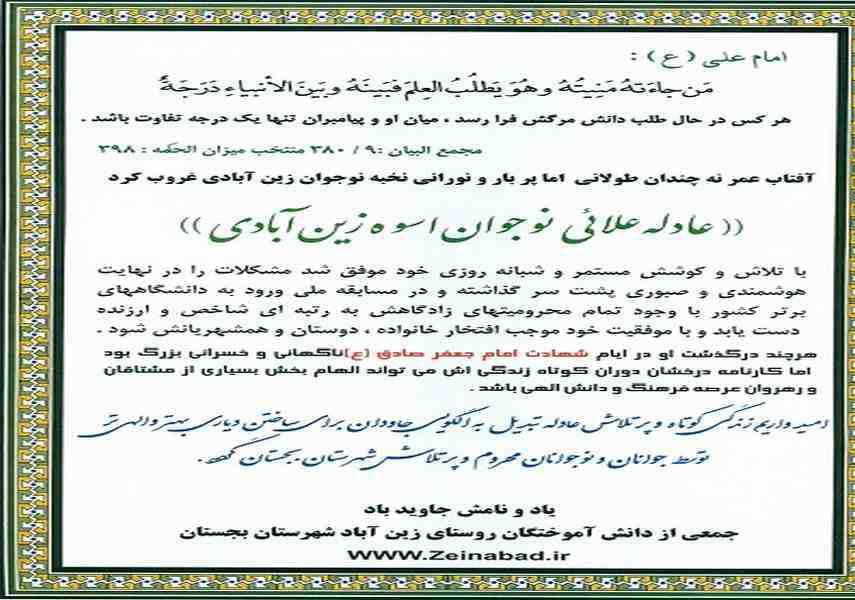 امام علی (ع) :
مَن جاءَتهُ مَنِيَّتُهُ وهُوَ يَطلُبُ العِلمَ فَبَينَهُ وبَينَ الأنبياءِ دَرَجَةٌ
هر کس در حال طلب دانش مرگش فرا رسد ، میان او و پیامبران تنها یک درجه تفاوت باشد .
مجمع البیان :۹ / ۳۸۰ منتخب میزان الحکمه : ۳۹۸
آفتاب عمر نه چندان طولانی اما پر بار و نورانی نخبه نوجوان زین آبادی غروب کرد
(( عادله علائی نوجوان اسوه زین آبادی ))
با تلاش و کوشش مستمر و شبانه روزی خود موفق شد مشکلات را در نهایت
هوشمندی و صبوری پشت سر گذاشته و در مسابقه ملی ورود به دانشگاههای
برتر کشور با وجود تمام محرومیتهای زادگاهش به رتبه ای شاخص و ارزنده
دست یابد و با موفقیت خود موجب افتخار خانواده ، دوستان و همشهریانش شود .
هرچند درگذشت او در ایام شهادت امام جعفر صادق (ع)ناگهانی و خسرانی بزرگ بود
اما کارنامه درخشان دوران کوتاه زندگی اش می تواند الهام بخش بسیاری از مشتاقان
و رهروان عرصه فرهنگ و دانش الهی باشد .
امیدواریم زندگی کوتاه و پرتلاش عادله تبدیل به الگویی جاودان برای ساختن دیاری بهتر و الهی تر
توسط جوانان و نوجوانان محروم و پرتلاش شهرستان بجستان گردد .
یاد و نامش جاوید باد
جمعی از دانش آموختگان روستای زین آباد شهرستان بجستان
WWW.Zeinabad.ir